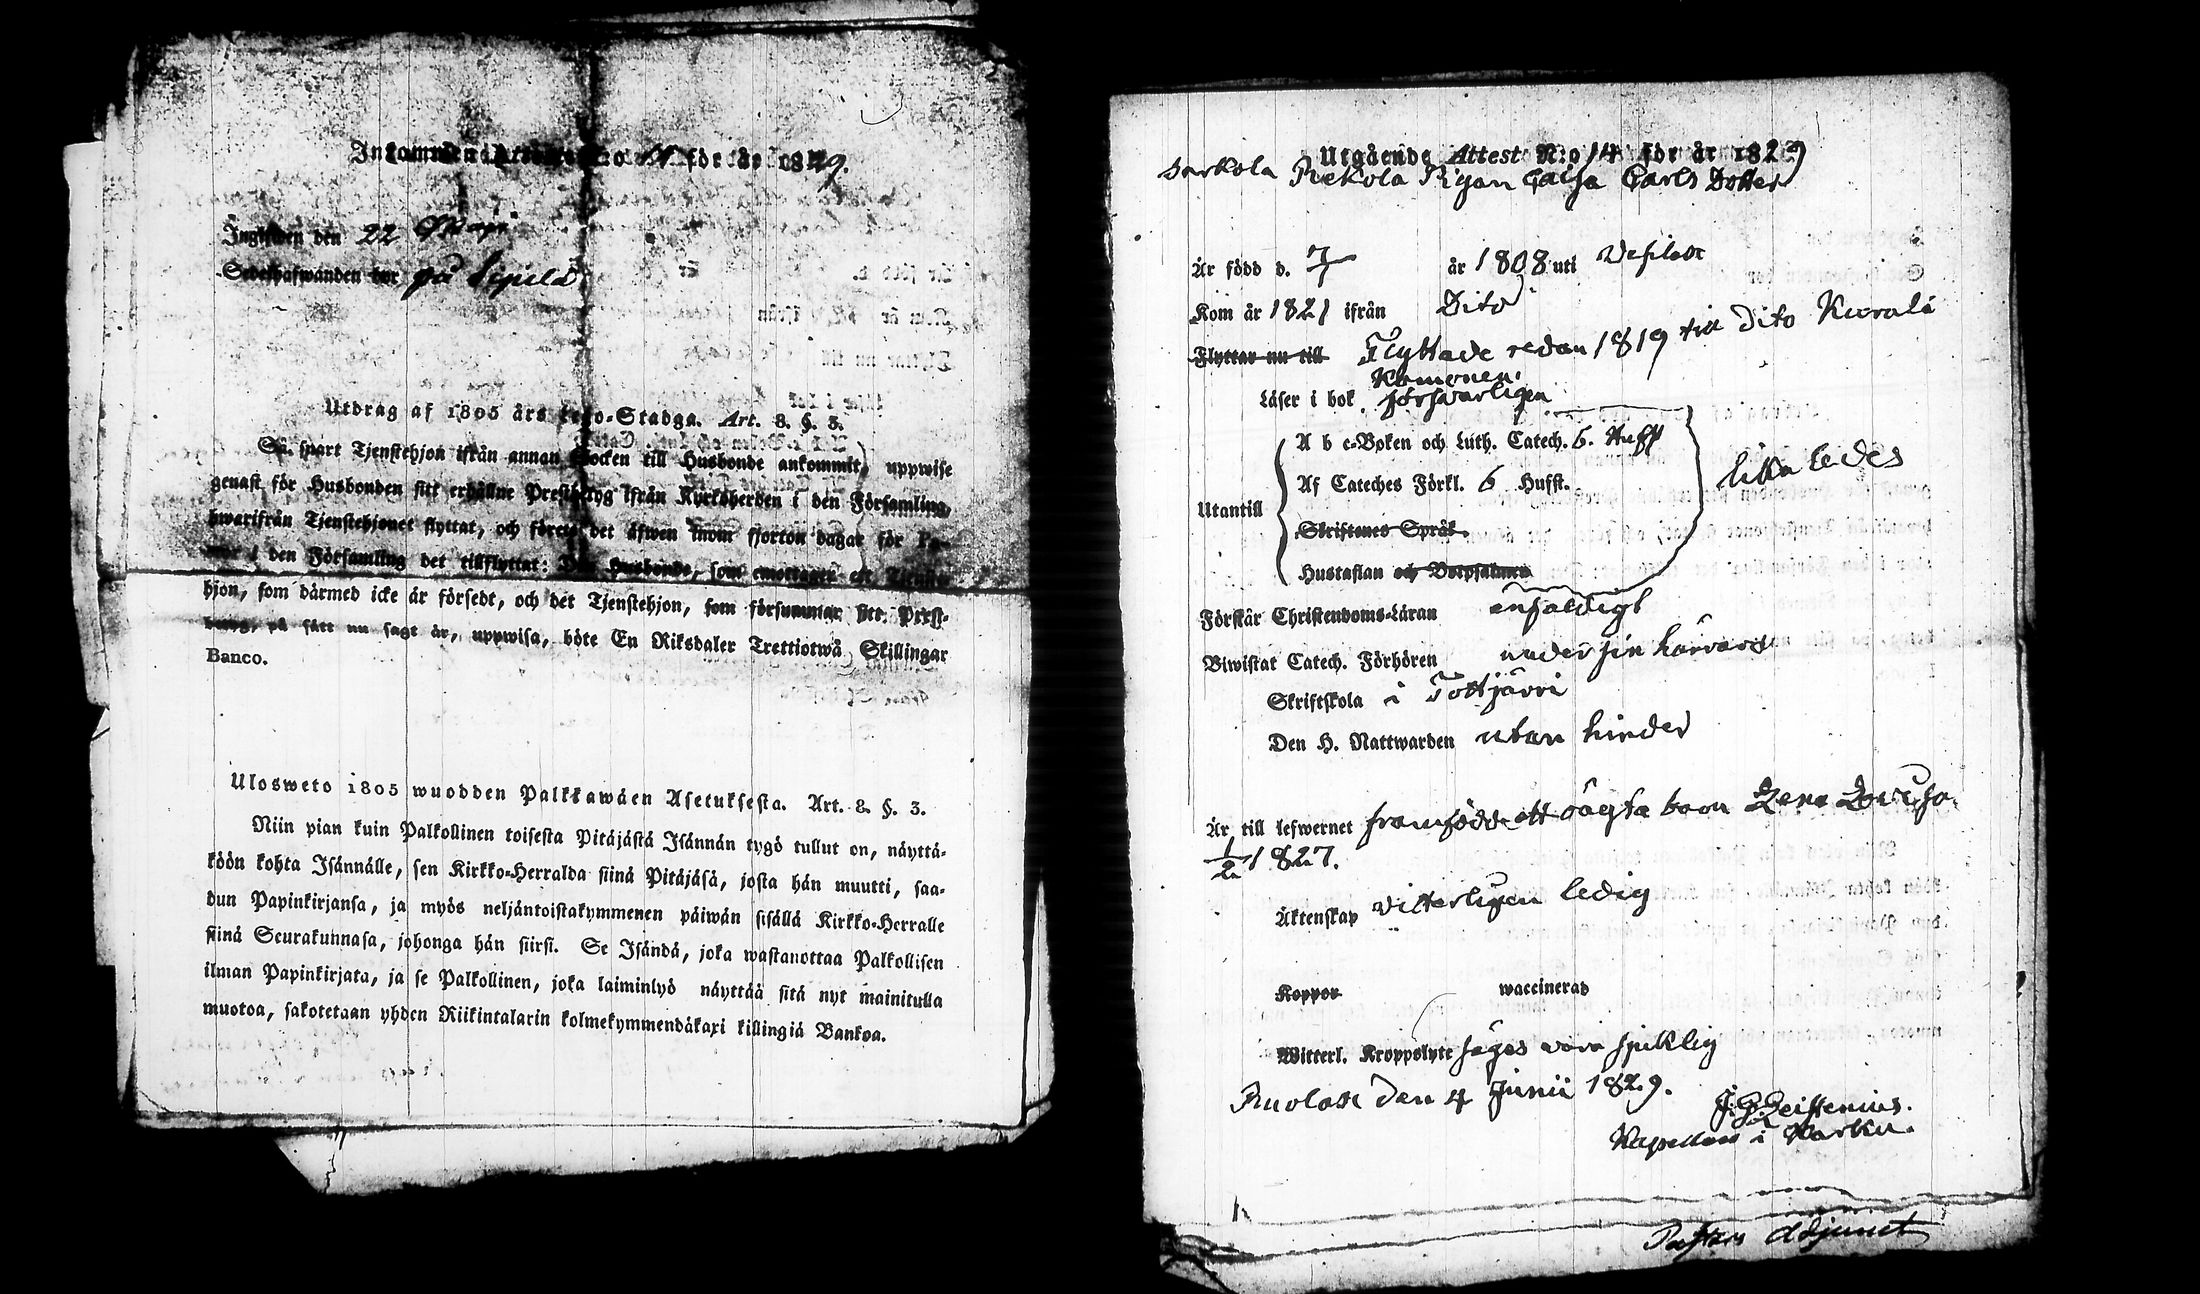 Inkommen Attest N:o 11 för år 1829.
Ingifwen den 22 Maji
Sedelhafwanden bor på Sipilä
Utdrag af 1805 års Lego-Stadga. Art. 8. §. 3.
Så snart Tjenstehjon ifrån annan Socken till Husbonde ankommit, uppwise
genast för Husbonden sitt erhållne Prestbetyg ifrån Kyrkoherden i den Församling,
hwarifrån Tjenstehjonet flyttat, och förete det äfwen inom fjorton dagar för Pa-
stor i den Församling det tillflyttat: Den Husbonde, som emottager ett Tjenste-
hjon, som därmed icke är försedt, och det Tjenstehjon, som försummar sitt Prest-
betyg, på sätt nu sagt är, uppwisa, böte En Riksdaler Trettiotwå Skillingar
Banco.
Ulosweto 1805 wuodden Palkkawäen Asetuksesta. Art. 8. §. 3.
Niin pian kuin Palkollinen toisesta Pitäjästä Isännän tygö tullut on, näyttä-
köön kohta Isännälle, sen Kirkko-Herralda siinä Pitäjäsä, josta hän muutti, saa-
dun Papinkirjansa, ja myös neljäntoistakymmenen päiwän sisällä Kirkko-Herralle
siinä Seurakunnasa, johonga hän siirsi. Se Isändä, joka wastanottaa Palkollisen
ilman Papinkirjata, ja se Palkollinen, joka laiminlyö näyttää sitä nyt mainitulla
muotoa, sakotetaan yhden Riikintalarin kolmekymmendäkaxi killingiä Bankoa.
Utgående Attest N:o 14 för år 1829
Sarkola Rekola Pigan Caisa Carls Dotter
Är född d. 7/1 år 1808 uti Vesilax
Kom år 1821 ifrån Dito
Flyttar nu till Flyttade redan 1819 till Dito Kurala
Komonen.
Läser i bok försvarligen
A b c-Boken och Luth. Catech. 6. Hufst
Af Cateches Förkl. 6 Hufst. lika ledes
Utantill
Skriftenes Språk
Hustaflan och Botpsalmen
Förstår Christendoms-Läran enfaldigt
Biwistat Catech. Förhören under sin härvaro
Skriftskola i Tottjärvi
Den H. Nattwarden utan hinder
Är till lefwernet framfödde ett oägta barn Lena Lovisa
1/2 1827.
Äktenskap vitterligen ledig
Koppor waccinerad
Witterl. Kroppslyte säges vara sjuklig
Ruolax den 4 Junii 1829.
J. G. Geistenius.
Kapellan i Karku.
Pastors Adjunct